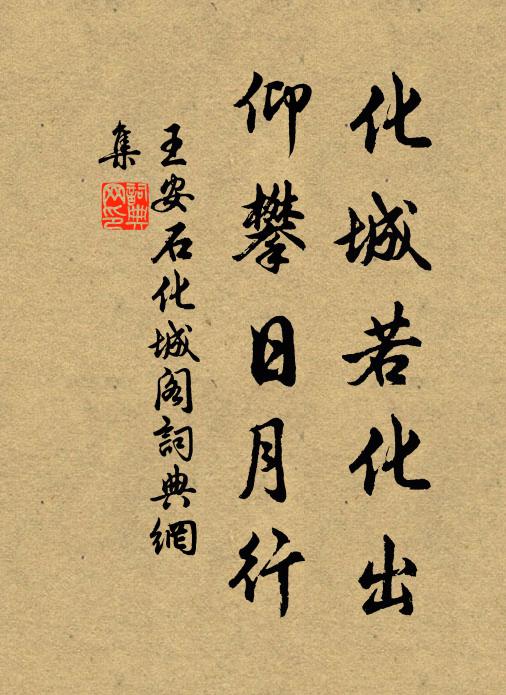 化城若化出
仰攀日月行
王安石化城阁詞典網
集
詞典網印